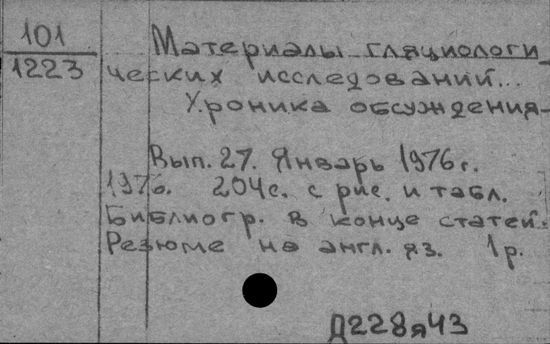 101
1223
Материалы гляциологи
ческих исследований...
Хроника обсуждения
Вып. 27. Январь 1976 г.
1976. 204 с. с рис. и табл.
Библиогр. в конце статей.
Резюме на англ. яз. 1 р.
Д228я43